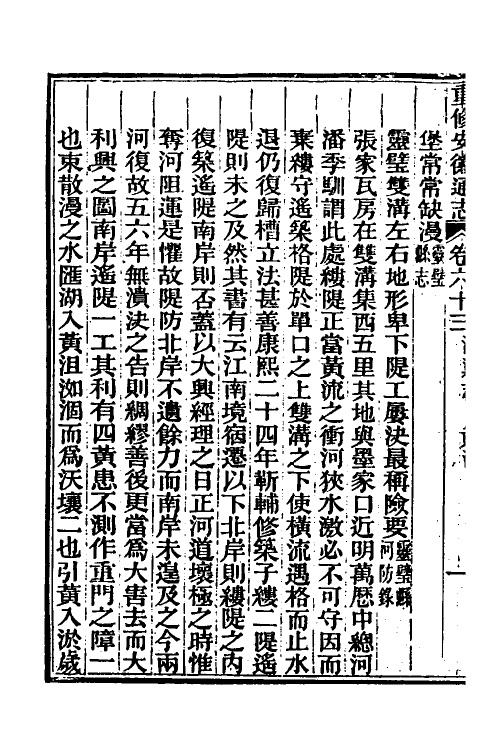 重修安徽通志 卷六十三
堡常常缺漫靈璧縣志
靈璧雙溝左右地形卑下隄工屢決最稱險要靈璧縣河防錄
張家瓦房在雙溝集西五里其地與墨家口近明萬歷中總河
潘季馴謂此處縷隄正當黃流之衝河狹水激必不可守因而
棄縷守遙築格隄於單口之上雙溝之下使橫流遇格而止水
退仍復歸槽立法甚善康熙二十四年靳輔修築子縷二隄遙
隄則未之及然其書有云江南境宿遷以下北岸則縷隄之內
復築遙隄南岸則否蓋以大興經理之日正河道壞極之時惟
奪河阻運是懼故隄防北岸不遺餘力而南岸未遑及之今兩
河復故五六年無潰決之告則綢繆善後更當爲大害去而大
利興之圖南岸遙隄一工其利有四黃患不測作重門之障一
也束散漫之水匯湖入黃沮洳涸而爲沃壤二也引黃入淤歲